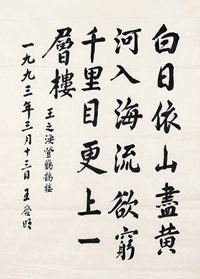 白日依山盡黄
河入海流欲窮
千里目更上一
層樓
王之渙登鸛鵲樓
一九九三年三月十三日王啓明